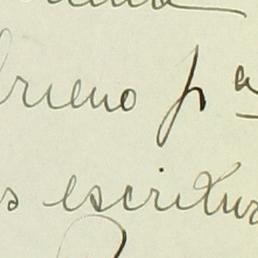 rieno pª
s escritur